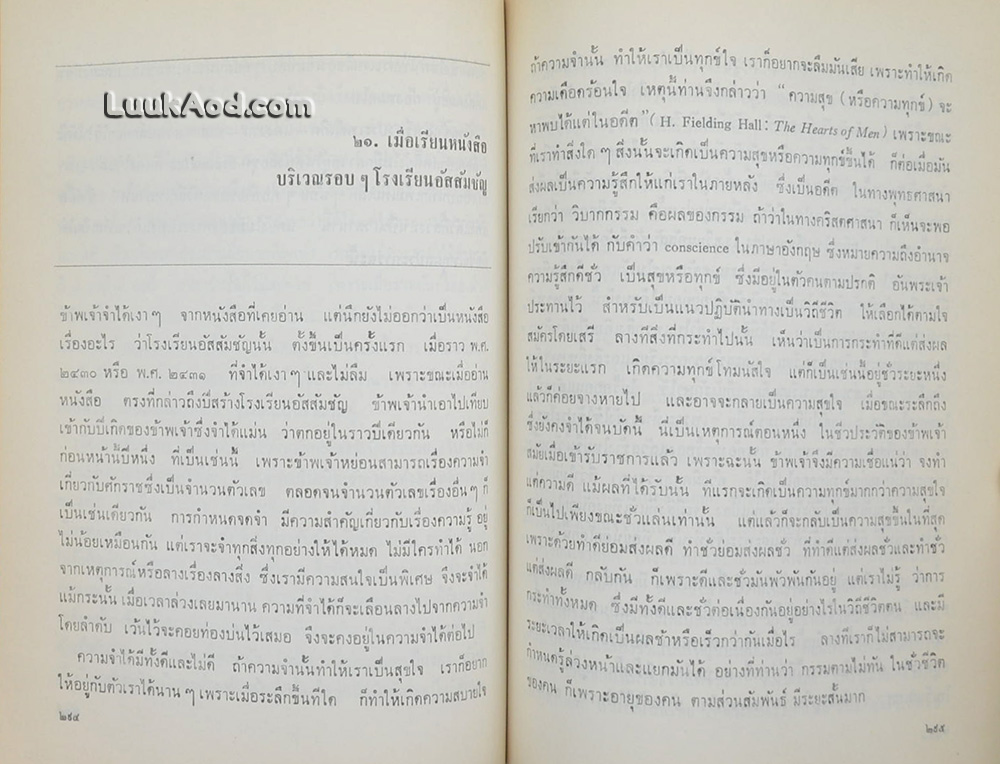 LuukAod.com
๒๑. เมื่อเรียนหนังสือ
บริเวณรอบ ๆ โรงเรียนอัสสัมชัญ
ข้าพเจ้าจำได้เงา ๆ จากหนังสือที่เคยอ่าน แต่นึกยังไม่ออกว่าเป็นหนังสือ
เรื่องอะไร ว่าโรงเรียนอัสสัมชัญนั้น ตั้งขึ้นเป็นครั้งแรก เมื่อราว พ.ศ.
๒๔๓๐ หรือ พ.ศ. ๒๔๓๑ ที่จำได้เงา ๆ และไม่ลืม เพราะขณะเมื่ออ่าน
หนังสือ ตรงที่กล่าวถึงปีสร้างโรงเรียนอัสสัมชัญ ข้าพเจ้านำเอาไปเทียบ
เข้ากับปีเกิดของข้าพเจ้าซึ่งจำได้แม่น ว่าตกอยู่ในราวปีเดียวกัน หรือไม่ก็
ก่อนหน้านี้ปีหนึ่ง ที่เป็นเช่นนี้ เพราะข้าพเจ้าหย่อนสามารถเรื่องความจำ
เกี่ยวกับศักราชซึ่งเป็นจำนวนตัวเลข ตลอดจนจำนวนตัวเลขเรื่องอื่น ๆ ก็
เป็นเช่นเดียวกัน การกำหนดจดจำ มีความสำคัญเกี่ยวกับเรื่องความรู้ อยู่
ไม่น้อยเหมือนกัน แต่เราจะจำทุกสิ่งทุกอย่างให้ได้หมด ไม่มีใครทำได้ นอก
จากเหตุการณ์หรือลางเรื่องลางสิ่ง ซึ่งเรามีความสนใจเป็นพิเศษ จึงจะจำได้
แม้กระนั้น เมื่อเวลาล่วงเลยมานาน ความที่จำได้ก็จะเลือนลางไปจากความจำ
โดยลำดับ เว้นไว้จะคอยท่องบ่นไว้เสมอ จึงจะคงอยู่ในความจำได้ต่อไป
ความจำได้มีทั้งดีและไม่ดี ถ้าความจำนั้นทำให้เราเป็นสุขใจ เราก็อยาก
ให้อยู่กับตัวเราได้นาน ๆ เพราะเมื่อระลึกขึ้นทีใด ก็ทำให้เกิดความสบายใจ
๒๙๔
ถ้าความจำนั้น ทำให้เราเป็นทุกข์ใจ เราก็อยากจะลืมมันเสีย เพราะทำให้เกิด
ความเดือดร้อนใจ เหตุนี้ท่านจึงกล่าวว่า “ ความสุข ( หรือความทุกข์ ) จะ
หาพบได้แต่ในอดีต ” ( H. Fielding Hall : The Hearts of Men ) เพราะขณะ
ที่เราทำสิ่งใด ๆ สิ่งนั้นจะเกิดเป็นความสุขหรือความทุกข์ขึ้นได้ ก็ต่อเมื่อมัน
ส่งผลเป็นความรู้สึกให้แก่เราในภายหลัง ซึ่งเป็นอดีต ในทางพุทธศาสนา
เรียกว่า วิบากกรรม คือผลของกรรม ถ้าว่าในทางคริสตศาสนา ก็เห็นจะพอ
ปรับเข้ากันได้ กับคำว่า conscience ในภาษาอังกฤษ ซึ่งหมายความถึงอำนาจ
ความรู้สึกดีชั่ว เป็นสุขหรือทุกข์ ซึ่งมีอยู่ในตัวคนตามปรกติ อันพระเจ้า
ประทานไว้ สำหรับเป็นแนวปฏิบัตินำทางเป็นวิถีชีวิต ให้เลือกได้ตามใจ
สมัครโดยเสรี ลางทีสิ่งที่กระทำไปนั้น เห็นว่าเป็นการกระทำที่ดีแต่ส่งผล
ให้ในระยะแรก เกิดความทุกข์โทมนัสใจ แต่ก็เป็นเช่นนี้อยู่ชั่วระยะหนึ่ง
แล้วก็ค่อยจางหายไป และอาจจะกลายเป็นความสุขใจ เมื่อขณะระลึกถึง
ซึ่งยังคงจำได้จนบัดนี้ นี่เป็นเหตุการณ์ตอนหนึ่ง ในชีวประวัติของข้าพเจ้า
สมัยเมื่อเข้ารับราชการแล้ว เพราะฉะนั้น ข้าพเจ้าจึงมีความเชื่อแน่ว่า จงทำ
แต่ความดี แม้ผลที่ได้รับนั้น ทีแรกจะเกิดเป็นความทุกข์มากกว่าความสุขใจ
ก็เป็นไปเพียงขณะชั่วแล่นเท่านั้น แต่แล้วก็จะกลับเป็นความสุขขึ้นในที่สุด
เพราะด้วยทำดีย่อมส่งผลดี ทำชั่วย่อมส่งผลชั่ว ที่ทำดีแต่ส่งผลชั่วและทำชั่ว
แต่ส่งผลดี กลับกัน ก็เพราะดีและชั่วมันพัวพันกันอยู่ แต่เราไม่รู้ ว่าการ
กระทำทั้งหมด ซึ่งมีทั้งดีและชั่วต่อเนื่องกันอยู่อย่างไรในวิถีชีวิตคน และมี
ระยะเวลาให้เกิดเป็นผลช้าหรือเร็วกว่ากันเมื่อไร ลางทีเราก็ไม่สามารถจะ
กำหนดรู้ล่วงหน้าและแยกมันได้ อย่างที่ท่านว่า กรรมตามไม่ทัน ในชั่วชีวิต
ของคน ก็เพราะอายุของคน ตามส่วนสัมพันธ์ มีระยะสั้นมาก
๒๙๕